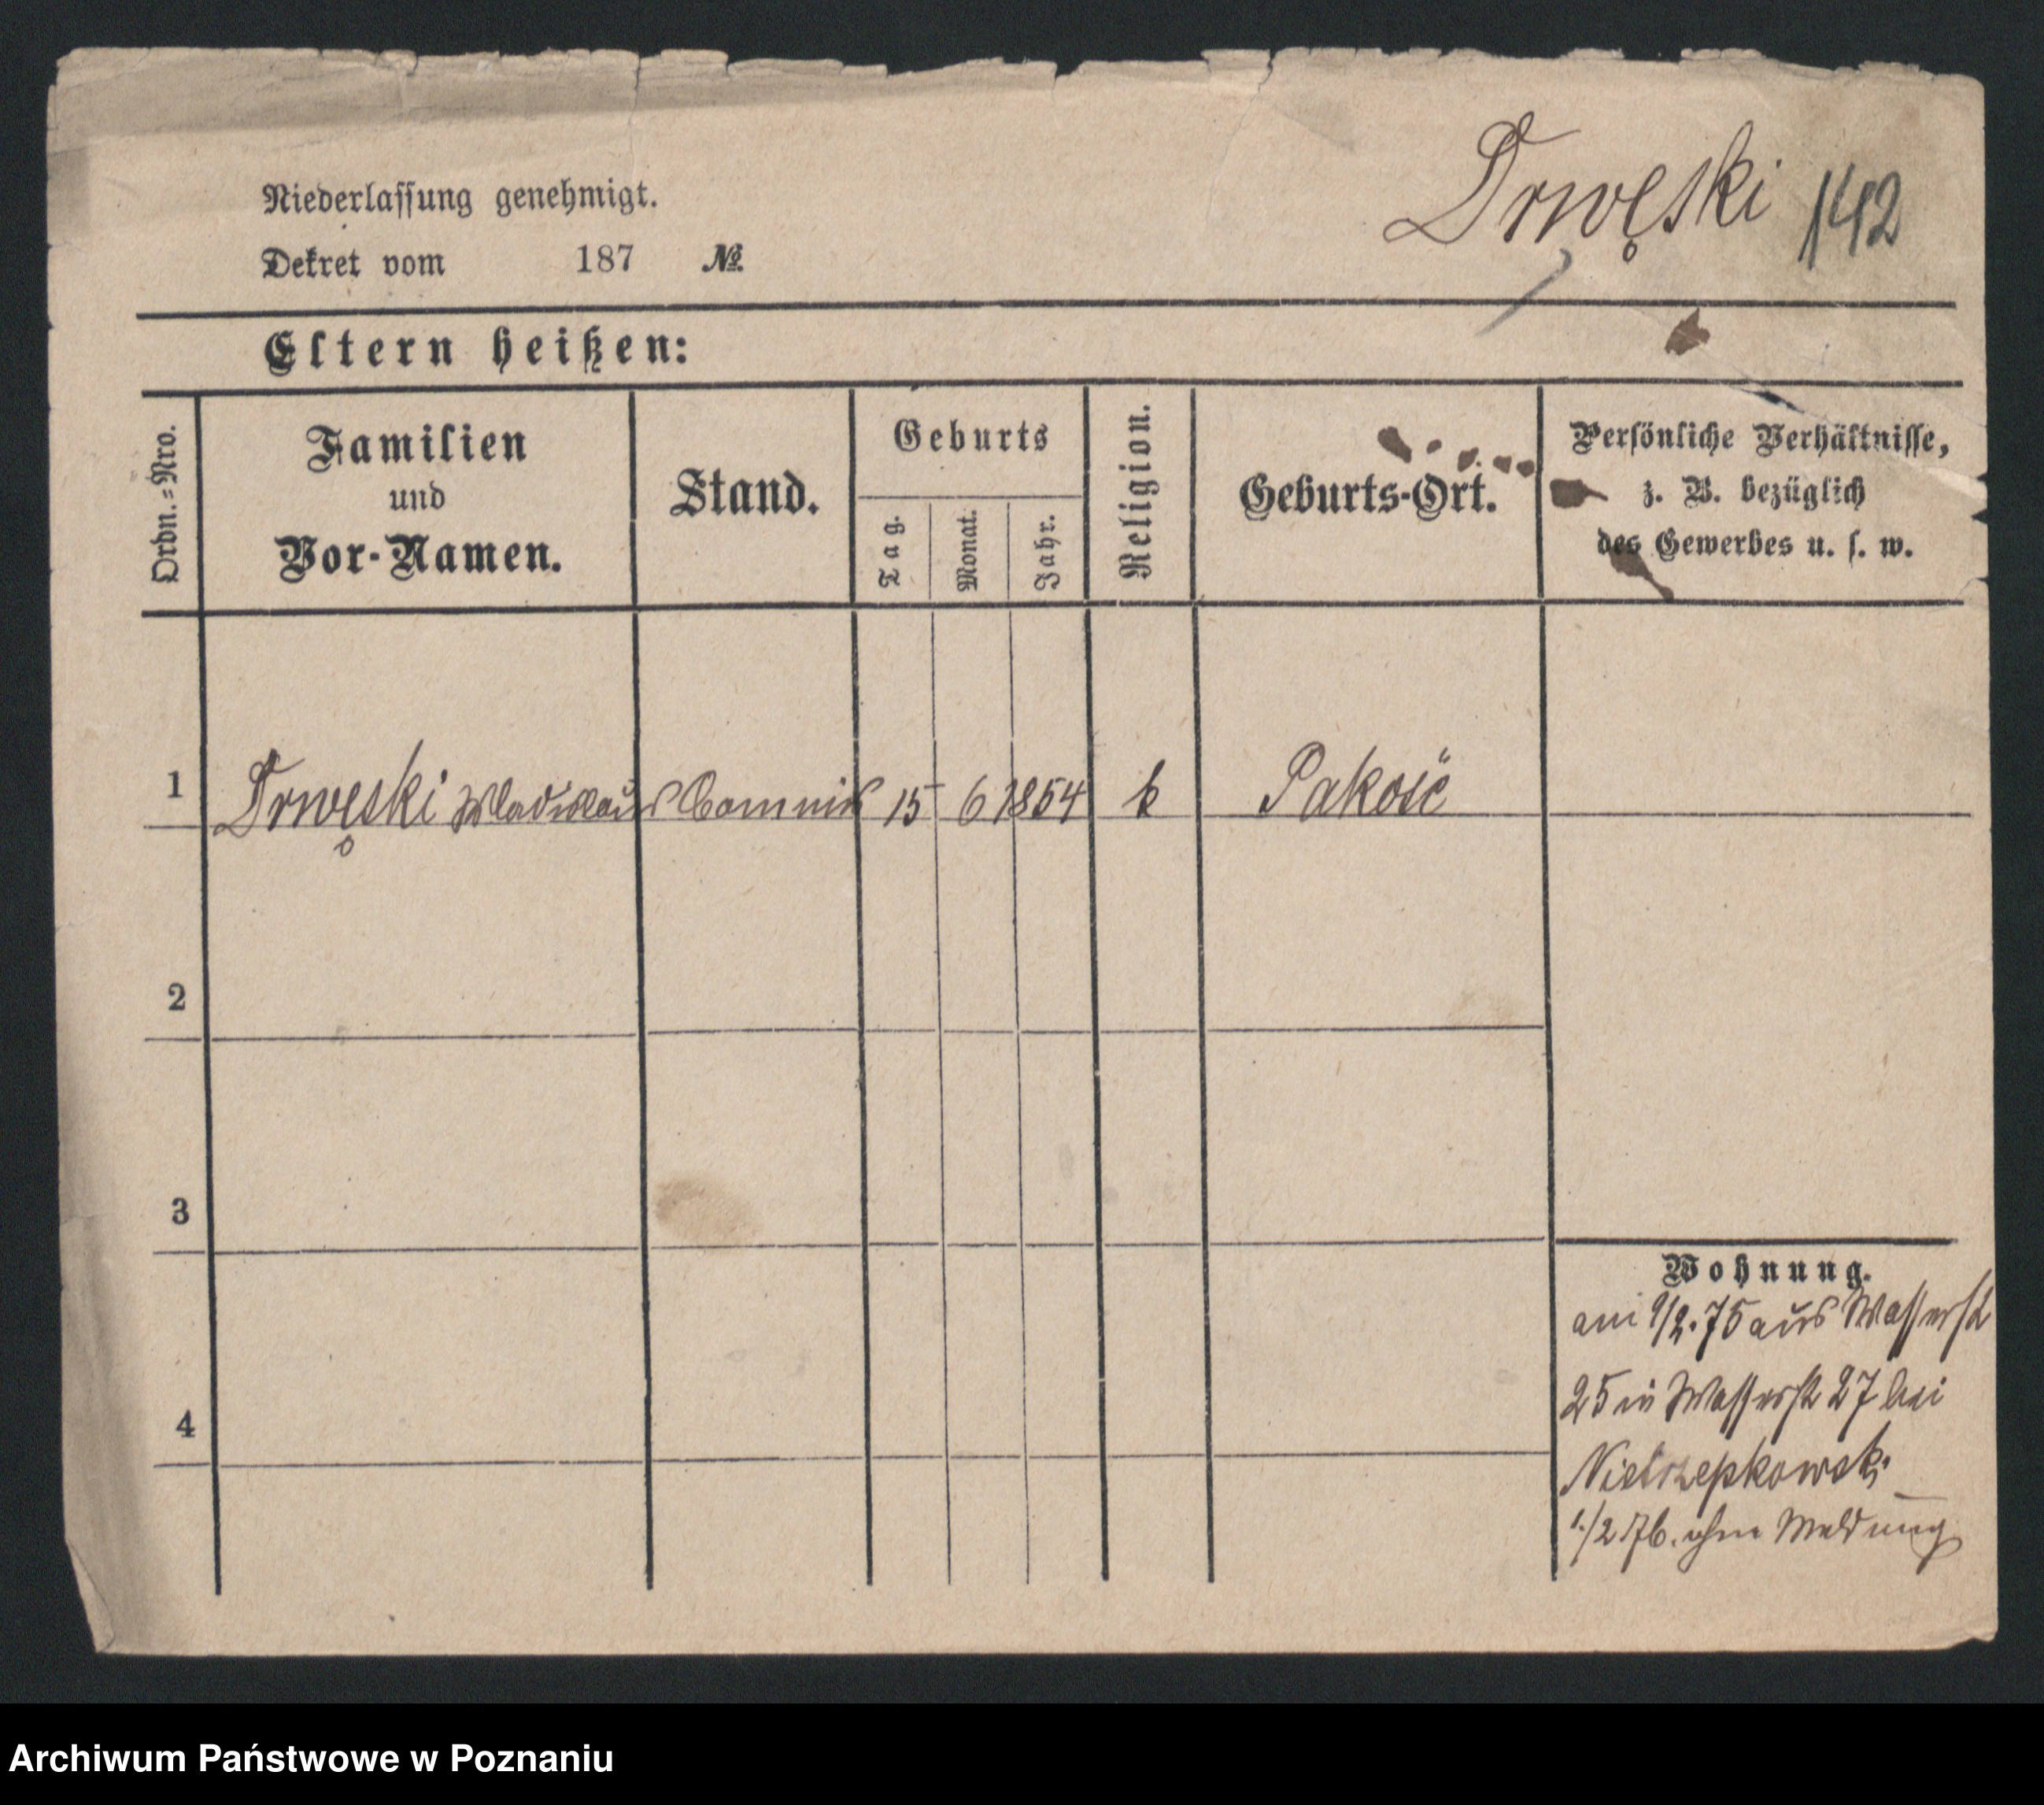 Drwęski 142
Niederlassung genehmigt.
Dekret vom 187 №
Eltern heißen:
Ordn.=Nro.
Familien
und
Vor-Namen.
Stand.
Geburts
Tag.
Monat.
Jahr.
Religion.
Geburts-Ort.
Persönliche Verhältnisse,
z. B. bezüglich
des Gewerbes u. s. w.
1 Drwęski Wladislaus Commis 15 6 1854 k Pakość
2
3
4
Wohnung.
am 1/2.75 aus Wasserst
25 in Wasserst 27 bei
Nietrzepkowski
1/2 76. ohne Meldung
Archiwum Państwowe w Poznaniu